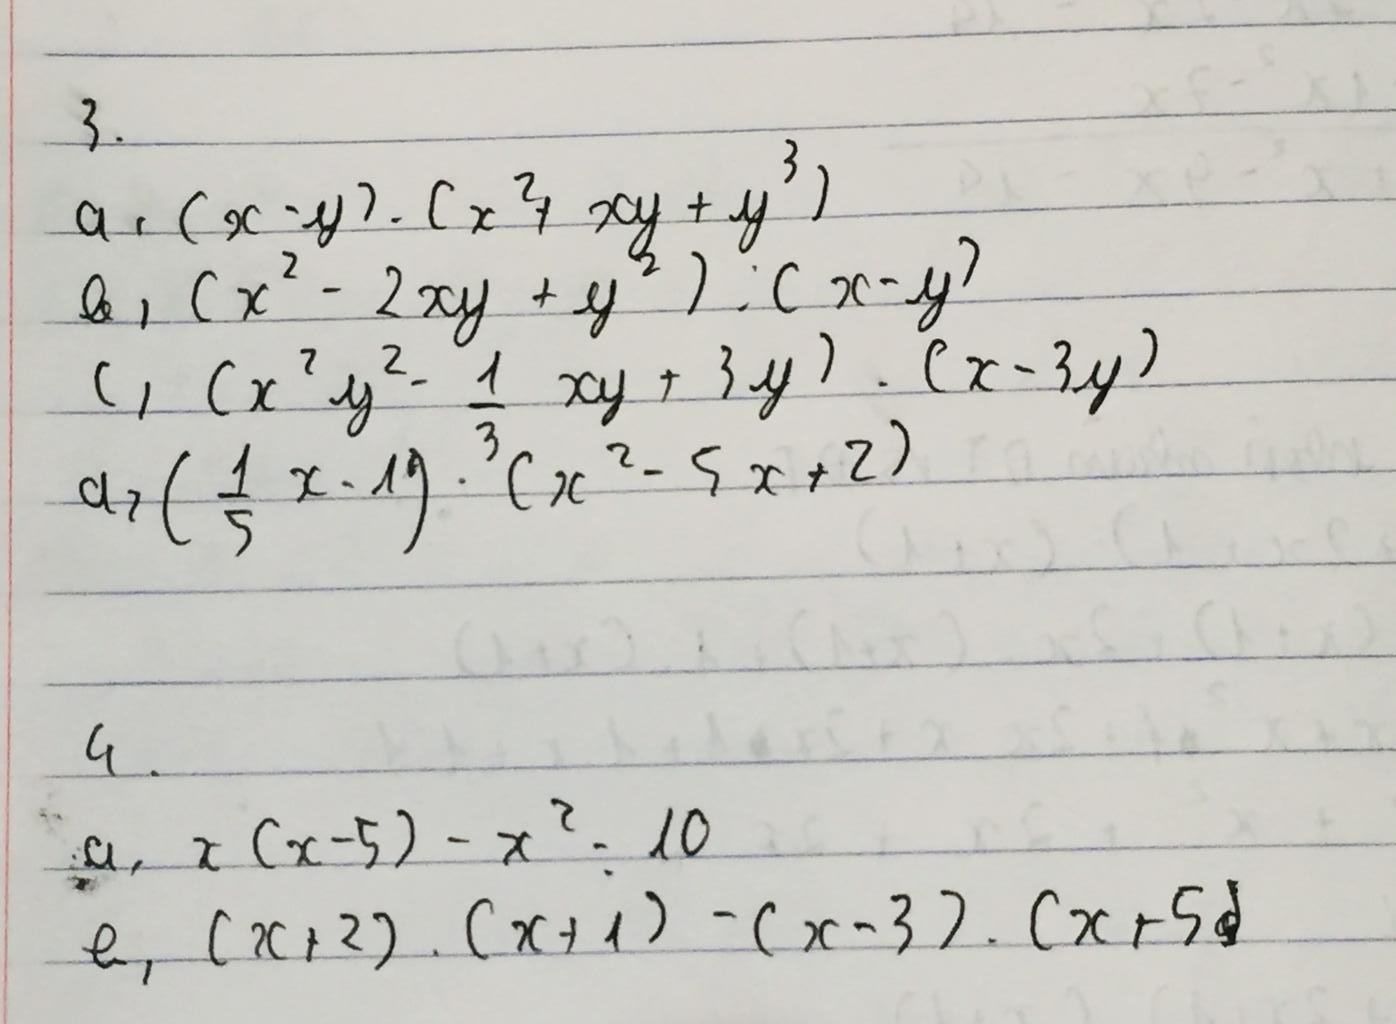 3.
a, (x-y). (x²+ xy + y³)
b, (x² - 2xy + y²) . (x-y)
c, (x²y² - 1/3 xy + 3y) . (x-3y)
d, (1/5 x - 1) . (x² - 5x + 2)
4.
a, x (x-5) - x² - 10
b, (x+2) . (x+1) - (x-3) . (x+5)